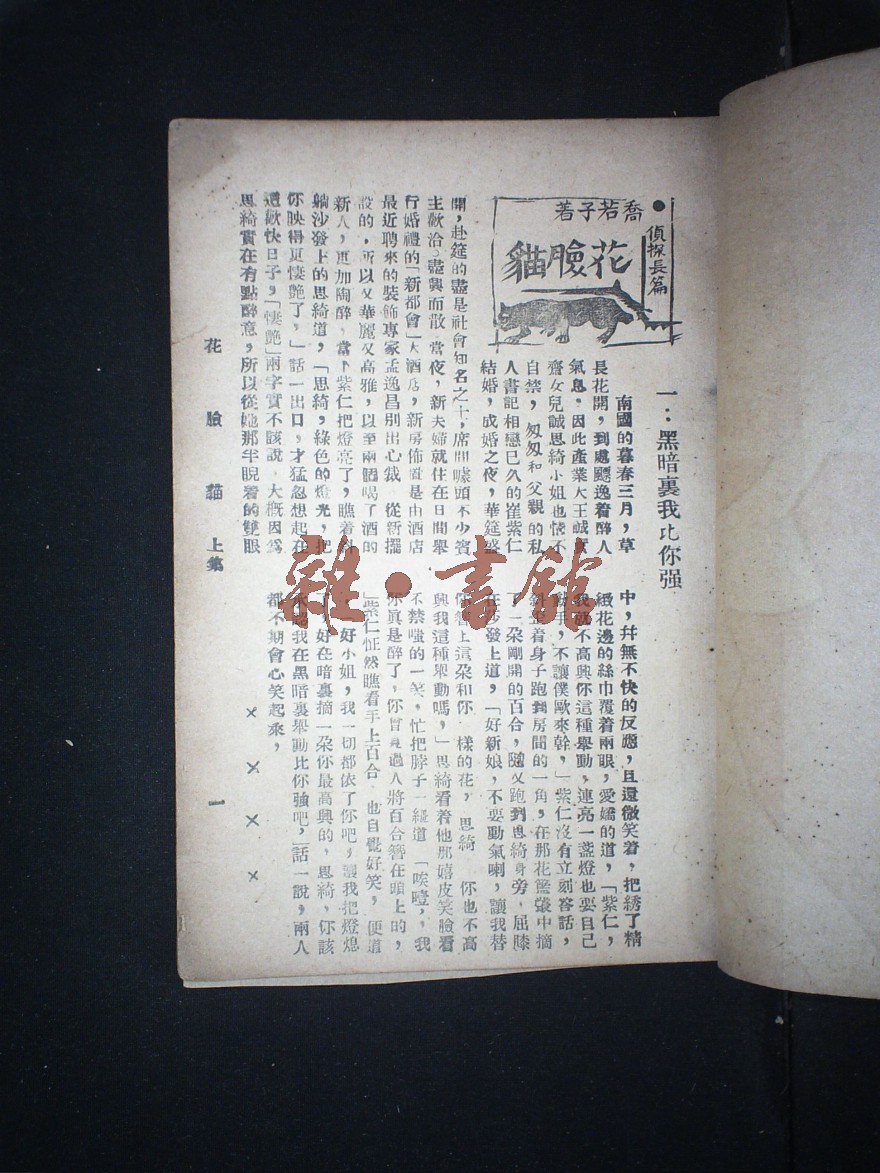 ●偵探長篇
喬若子著
花臉貓
一：黑暗裏我比你强
南國的暮春三月，草
長花開，到處飄逸着醉人
氣息。因此產業大王誠
齋女兒誠思綺小姐也情不
自禁，匆匆和父親的私
人書記相戀已久的崔紫仁
結婚，成婚之夜，華筵盛
開，赴筵的盡是社會知名之士，席間噱頭不少賓
主歡洽。盡興而散。當夜，新夫婦就住在日間舉
行婚禮的「新都會」大酒店，新房佈置是由酒店
最近聘來的裝飾專家孟逸昌别出心裁 從新擺
設的，所以又華麗又高雅，以至兩個喝了酒的
新人，更加陶醉，當下紫仁把燈亮了，瞧着斜
躺沙發上的思綺道，「思綺，綠色的燈光，把
你映得更悽艷了，」話一出口，才猛忽想起在
這歡快日子，「悽艷」兩字實不該說，大概因爲
思綺實在有點醉意，所以從她那半睨着的雙眼
中，幷無不快的反應，且還微笑着，把綉了精
緻花邊的絲巾覆着兩眼，愛嬌的道，「紫仁，
我就不高興你這種舉動，連亮一盞燈也要自己
動手，不讓僕歐來幹，」紫仁沒有立刻答話，
斜歪着身子跑到房間的一角，在那花籃叢中摘
了一朶剛開的百合，隨又跑到思綺身旁，屈膝
在沙發上道，「好新娘，不要動氣喇，讓我替
你簪上這朶和你一樣的花， 思綺 你也不高
興我這種舉動嗎，」思綺看着他那嬉皮笑臉看
不禁嗤的一笑，忙把脖子一縮道 「唉噎，，我
你眞是醉了，你曾見過人將百合簪在頭上的，
」紫仁怔然瞧看手上百合 也自覺好笑，便道
，「好小姐，我一切都依了你吧，讓我把燈熄
了，好在暗裏摘一朶你最高興的，思綺，你該
承認我在黑暗裏舉動比你強吧，」話一說，兩人
都不期會心笑起來，
× × × ×
花臉貓 上集 一
雜·書館